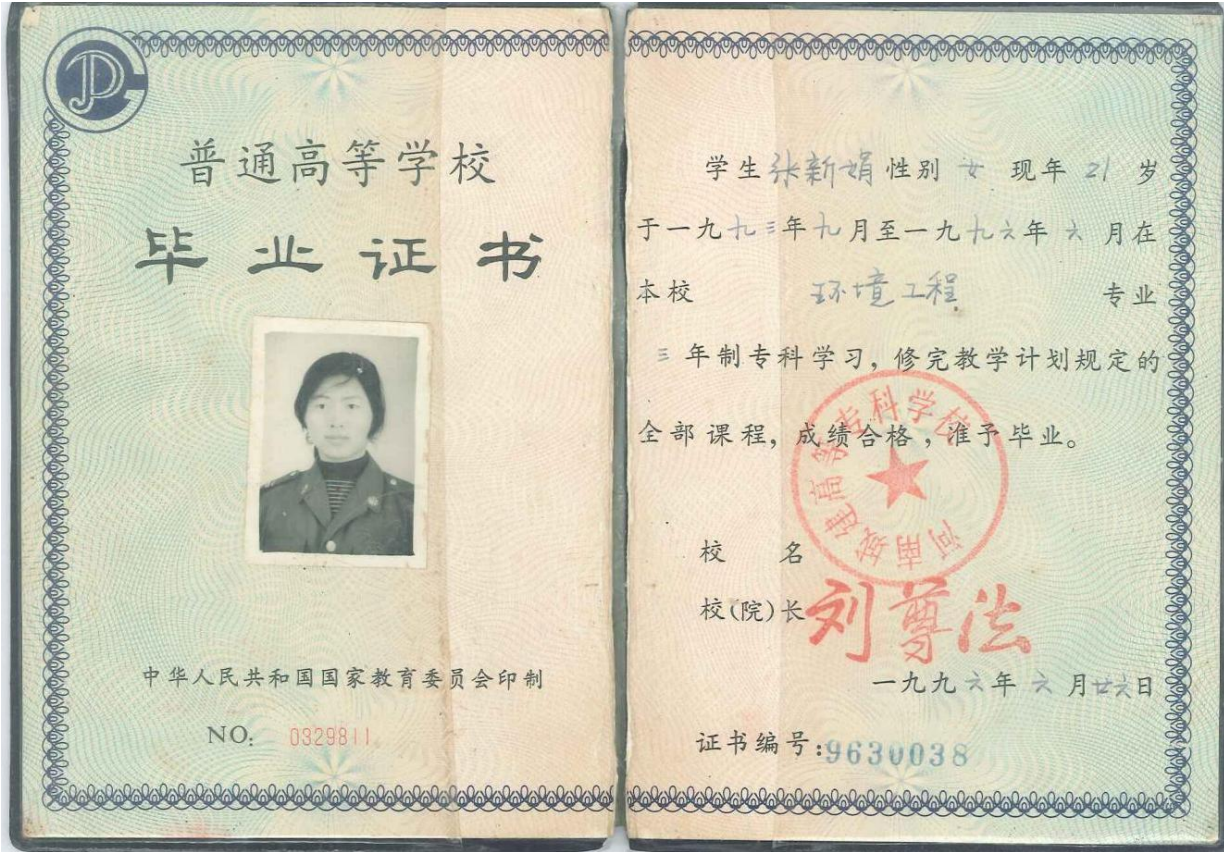 普通高等学校
毕业证书
中华人民共和国国家教育委员会印制
NO. 0329811
学生张新娟性别 女 现年 21 岁
于一九九三年九月至一九九六年六月在
本校 环境工程 专业
三年制专科学习，修完教学计划规定的
全部课程，成绩合格，准予毕业。
河南城建高等专科学校
校 名
校(院)长 刘尊法
一九九六年六月廿六日
证书编号:9630038